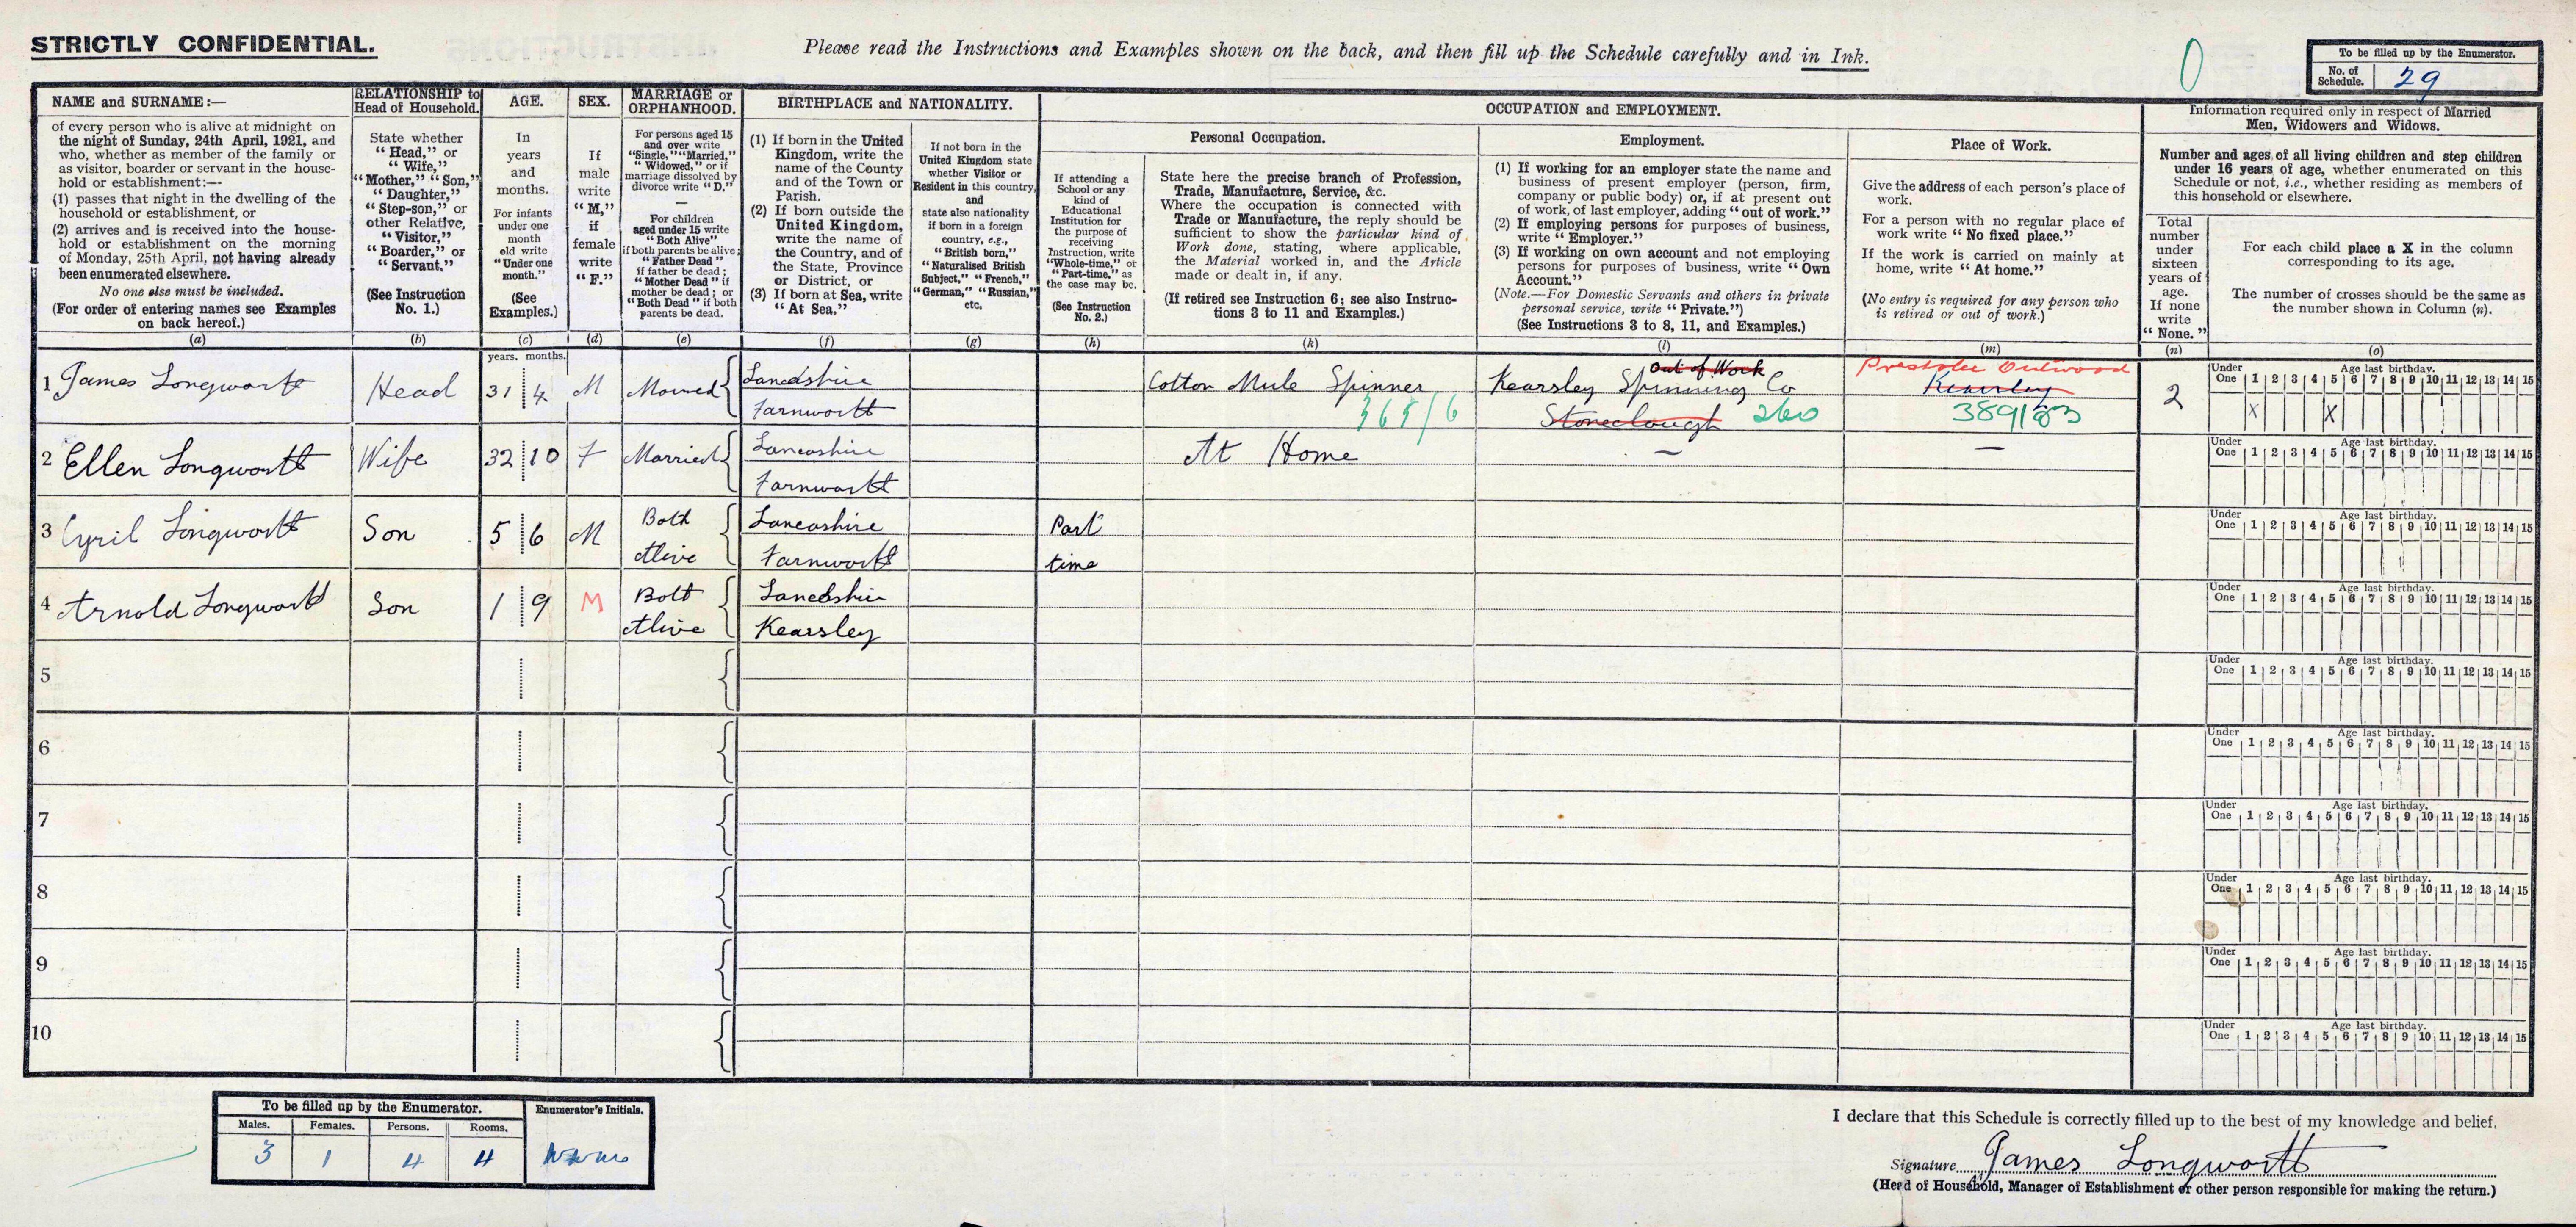 STRICTLY CONFIDENTIAL.
Please read the Instructions and Examples shown on the back, and then fill up the Schedule carefully and in Ink.
0
To be filled up by the Enumerator.
No. of Schedule. 29
NAME and SURNAME:—
of every person who is alive at midnight on
the night of Sunday, 24th April, 1921, and
who, whether as member of the family or
as visitor, boarder or servant in the house-
hold or establishment:—
(1) passes that night in the dwelling of the
household or establishment, or
(2) arrives and is received into the house-
hold or establishment on the morning
of Monday, 25th April, not having already
been enumerated elsewhere.
No one else must be included.
(For order of entering names see Examples
on back hereof.)
(a)
RELATIONSHIP to
Head of Household.
State whether
"Head," or
"Wife,"
"Mother," "Son,"
"Daughter,"
"Step-son," or
other Relative,
"Visitor,"
"Boarder," or
"Servant."
(See Instruction
No. 1.)
(b)
AGE.
In
years
and
months.
For infants
under one
month
old write
"Under one
month."
(See
Examples.)
(c)
SEX.
If
male
write
"M,"
if
female
write
"F."
(d)
MARRIAGE or
ORPHANHOOD.
For persons aged 15
and over write
"Single," "Married,"
"Widowed," or if
marriage dissolved by
divorce write "D."
—
For children
aged under 15 write
"Both Alive"
if both parents be alive;
"Father Dead"
if father be dead;
"Mother Dead" if
mother be dead; or
"Both Dead" if both
parents be dead.
(e)
BIRTHPLACE and NATIONALITY.
(1) If born in the United
Kingdom, write the
name of the County
and of the Town or
Parish.
(2) If born outside the
United Kingdom,
write the name of
the Country, and of
the State, Province
or District, or
(3) If born at Sea, write
"At Sea."
(f)
If not born in the
United Kingdom state
whether Visitor or
Resident in this country,
and
state also nationality
if born in a foreign
country, e.g.,
"British born,"
"Naturalised British
Subject," "French,"
"German," "Russian,"
etc.
(g)
OCCUPATION and EMPLOYMENT.
If attending a
School or any
kind of
Educational
Institution for
the purpose of
receiving
Instruction, write
"Whole-time," or
"Part-time," as
the case may be.
(See Instruction
No. 2.)
(h)
Personal Occupation.
State here the precise branch of Profession,
Trade, Manufacture, Service, &c.
Where the occupation is connected with
Trade or Manufacture, the reply should be
sufficient to show the particular kind of
Work done, stating, where applicable,
the Material worked in, and the Article
made or dealt in, if any.
(If retired see Instruction 6; see also Instruc-
tions 3 to 11 and Examples.)
(k)
Employment.
(1) If working for an employer state the name and
business of present employer (person, firm,
company or public body) or, if at present out
of work, of last employer, adding "out of work."
(2) If employing persons for purposes of business,
write "Employer."
(3) If working on own account and not employing
persons for purposes of business, write "Own
Account."
(Note.—For Domestic Servants and others in private
personal service, write "Private.")
(See Instructions 3 to 8, 11, and Examples.)
(l)
Place of Work.
Give the address of each person's place of
work.
For a person with no regular place of
work write "No fixed place."
If the work is carried on mainly at
home, write "At home."
(No entry is required for any person who
is retired or out of work.)
(m)
Information required only in respect of Married
Men, Widowers and Widows.
Number and ages of all living children and step children
under 16 years of age, whether enumerated on this
Schedule or not, i.e., whether residing as members of
this household or elsewhere.
Total
number
under
sixteen
years of
age.
If none
write
"None."
(n)
For each child place a X in the column
corresponding to its age.
The number of crosses should be the same as
the number shown in Column (n).
(o)
years. months.
1 James Longworth Head 31 4 M Married Lancashire Farnworth Cotton Mule Spinner 365/6 Kearsley Spinning Co Out of Work Stoneclough 260 Prestolee Outwood Kearsley 389/83 2
Under One Age last birthday. 1 2 3 4 5 6 7 8 9 10 11 12 13 14 15
X X
2 Ellen Longworth Wife 32 10 F Married Lancashire Farnworth At Home — —
Under One Age last birthday. 1 2 3 4 5 6 7 8 9 10 11 12 13 14 15
3 Cyril Longworth Son 5 6 M Both Alive Lancashire Farnworth Part time
Under One Age last birthday. 1 2 3 4 5 6 7 8 9 10 11 12 13 14 15
4 Arnold Longworth Son 1 9 M Both Alive Lancashire Kearsley
Under One Age last birthday. 1 2 3 4 5 6 7 8 9 10 11 12 13 14 15
5
Under One Age last birthday. 1 2 3 4 5 6 7 8 9 10 11 12 13 14 15
6
Under One Age last birthday. 1 2 3 4 5 6 7 8 9 10 11 12 13 14 15
7
Under One Age last birthday. 1 2 3 4 5 6 7 8 9 10 11 12 13 14 15
8
Under One Age last birthday. 1 2 3 4 5 6 7 8 9 10 11 12 13 14 15
9
Under One Age last birthday. 1 2 3 4 5 6 7 8 9 10 11 12 13 14 15
10
Under One Age last birthday. 1 2 3 4 5 6 7 8 9 10 11 12 13 14 15
To be filled up by the Enumerator.
Enumerator's Initials.
Males. Females. Persons. Rooms.
3 1 4 4
I declare that this Schedule is correctly filled up to the best of my knowledge and belief.
Signature James Longworth
(Head of Household, Manager of Establishment or other person responsible for making the return.)